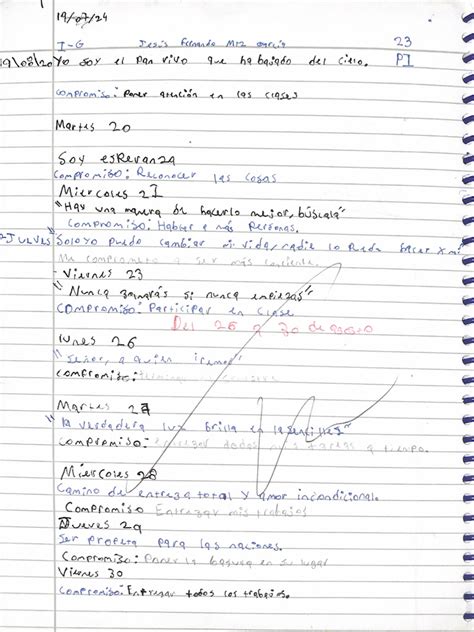 19/07/24
I-G Jesús Fernando Mtz García 23
19/08/20 Yo soy el Pan vivo que ha bajado del cielo. PI
compromiso: Poner atención en las clases
Martes 20
Soy esRevanza
compromiso: Reconocer las cosas
Miercoles 21
"Hay una manera de hacerlo mejor, búscala"
compromiso: Hablar a más Personas.
JUEVES Solo yo Puedo cambiar mi vida, nadie lo Puede hacer x mí
Me comprometo a ser más
Viernes 23
"Nunca ganarás si nunca empiezas"
compromiso: Participar en clase
Del 26 a 30 de agosto
lunes 26
"Señor, a quien iremos"
compromiso:
Martes 27
"la verdadera luz brilla en la sencillez"
compromiso: Entregar todas mis tareas a tiempo.
Miercoles 28
Camino de entrega total y amor incondicional.
Compromiso Entregar mis trabajos
Jueves 29
Ser profeta para las naciones.
Compromiso: Poner la basura en su lugar
Viernes 30
Compromiso: Entregar todos los trabajos.